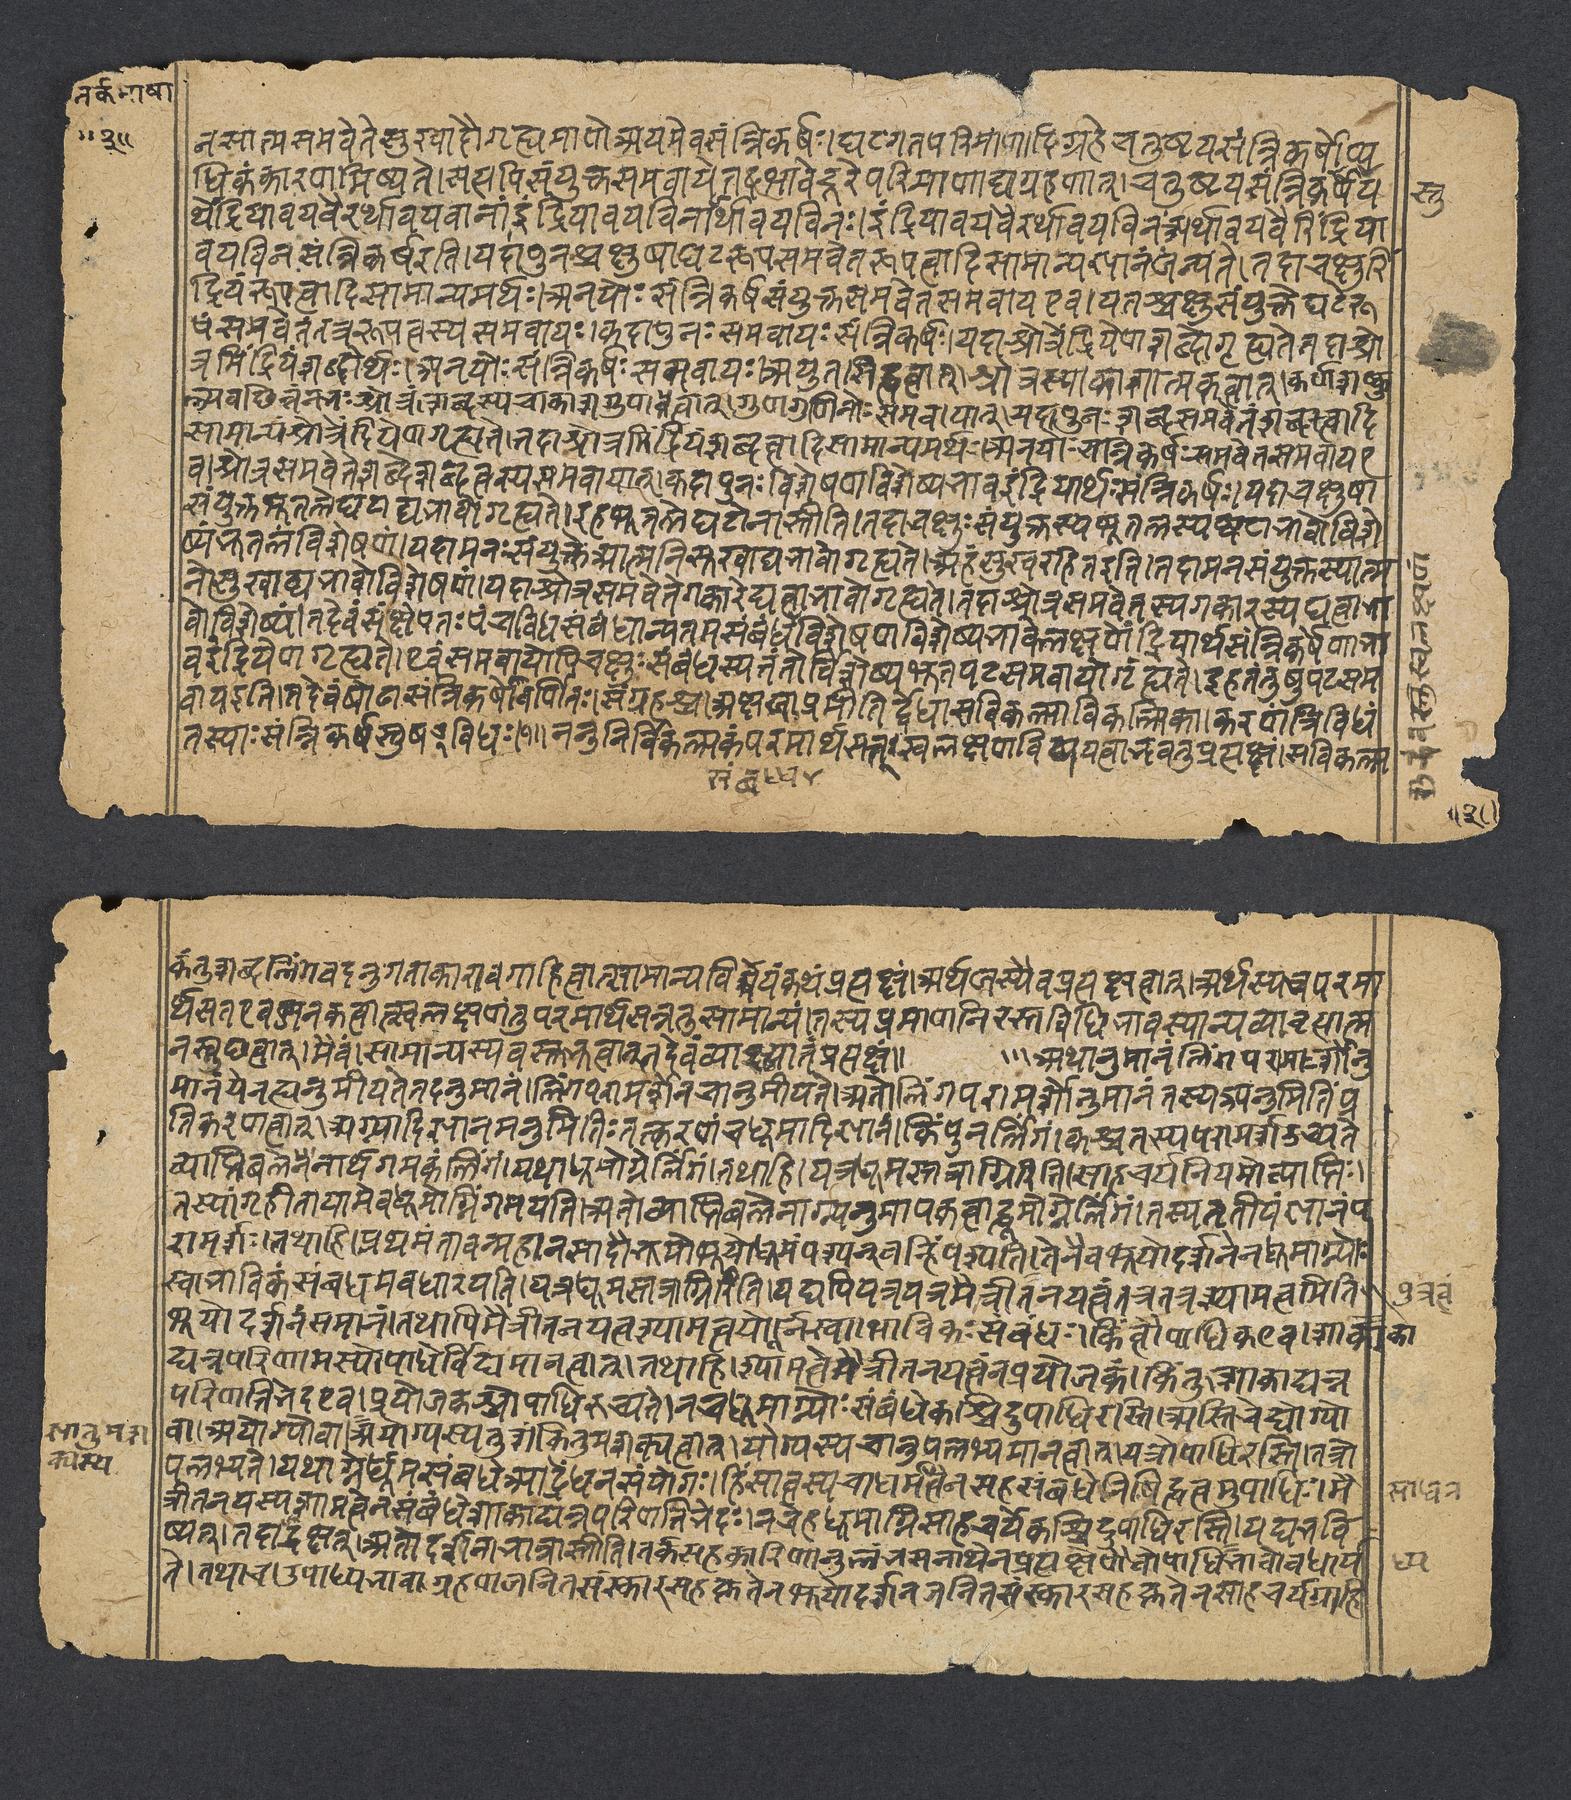 तर्कभाषा
॥३॥
नसात्मसमवेतेसुखादौगृह्यमाणेअयमेवसंन्निकर्षः।घटगतपरिमाणादिग्रहेचतुष्टयसंन्निकर्षोप्य
धिकंकारणमिष्यते।सत्यपिसंयुक्तसमवायेतदभावेदूरेपरिमाणाद्यग्रहणात्।चतुष्टयसंन्निकर्षोय
थेंद्रियावयवैरर्थावयवानांइंद्रियावयविनार्थावयविनः।इंद्रियावयवैरर्थावयविनःअर्थावयवैरिंद्रिया
वयविनसंन्निकर्षइति।यदापुनश्चक्षुषाघटरूपसमवेतरूपत्वादिसामान्यज्ञानंजन्यते।तदाचक्षुरिं
द्रियंरूपत्वादिसामान्यमर्थः।अनयोःसंन्निकर्षसंयुक्तसमवेतसमवायएव।यतश्चक्षुसंयुक्तेघटेरू
पंसमवेतंतत्ररूपत्वस्यसमवायः।कदापुनःसमवायःसंन्निकर्षः।यदाश्रोत्रेंद्रियेणशब्दोगृह्यतेतदाश्रो
त्रमिंद्रियंशब्दोर्थः।अनयोःसंन्निकर्षःसमवायः।अयुतसिद्धत्वात्।श्रोत्रस्याकाशात्मकत्वात्।कर्णशष्कु
ल्यवछिन्नंनभःश्रोत्रं।शब्दस्यचाकाशगुणत्वात्।गुणगुणिनोःसमवायात्।यदापुनःशब्दसमवेतंशब्दत्वादि
सामान्यंश्रोत्रेंद्रियेणगृह्यते।तदाश्रोत्रमिंद्रियंशब्दत्वादिसामान्यमर्थः।अनयोःसन्निकर्षःसमवेतसमवायए
व।श्रोत्रसमवेतेशब्देशब्दत्वस्यसमवायात्।कदापुनःविशेषणविशेष्यभावइंद्रियार्थसंन्निकर्षः।यदाचक्षुषा
संयुक्तेभूतलेघटाद्यभावोगृह्यते।इहभूतलेघटोनास्तीति।तदाचक्षुःसंयुक्तस्यभूतलस्यघटाभावोविशे
ष्यंभूतलंविशेषणं।यदामनःसंयुक्तेआत्मनिसुखाद्यभावोगृह्यते।अहंसुखरहितइति।तदामनसंयुक्तस्यात्म
नोसुखाद्यभावोविशेषणं।यदाश्रोत्रसमवेतेगकारेघत्वाभावोगृह्यते।तदाश्रोत्रसमवेतस्यगकारस्यघत्वाभा
वोविशेष्यं।तदेवंसंक्षेपतःपंचविधसंबंधान्यतमसंबंधविशेषणविशेष्यभावलक्षणेंद्रियार्थसंन्निकर्षेणाभा
वइंद्रियेणगृह्यते।एवंसमवायोपिचक्षुःसंबंधस्यतंतोर्विशेष्यभूतपटसमवायोगृह्यते।इहतंतुषुपटसम
वायइति।तदेवंषोढासंन्निकर्षोवर्णितः।संग्रहश्च।अक्षजाप्रमितिर्द्वेधासविकल्पाविकल्पिका।करणंत्रिविधं
तस्याःसंन्निकर्षस्तुषड्विधः॥ननुनिर्विकल्पकंपरमार्थसत्।स्वलक्षणविषयत्वाद्भवतुप्रत्यक्षं।सविकल्प
॥३॥
कंतुशब्दलिंगवदनुगताकारावगाहित्वात्सामान्यविषयंकथंप्रत्यक्षं।अर्थजस्यैवप्रत्यक्षत्वात्।अर्थस्यचपरमा
र्थसतएवजनकत्वात्स्वलक्षणंतुपरमार्थसन्नतुसामान्यं।तस्यप्रमाणनिरस्तविधिभावस्यान्यव्यावृत्यात्म
नस्तुछत्वात्।मैवं।सामान्यस्यवस्तुभूतत्वात्तदेवंव्याख्यातंप्रत्यक्षं॥ ॥अथानुमानंलिंगपरामर्शोनु
मानंयेनह्यनुमीयतेतदनुमानं।लिंगपरामर्शेनचानुमीयते।अतोलिंगपरामर्शोनुमानंतस्यह्यनुमितिंप्र
तिकरणत्वात्।अग्न्यादिज्ञानमनुमितिःतत्करणंचधूमादिज्ञानं।किंपुनर्लिंगं।कश्चतस्यपरामर्शउच्यते
व्याप्तिबलेनार्थगमकंलिंगं।यथाधूमोग्नेर्लिंगं।तथाहि।यत्रधूमस्तत्राग्निरिति।साहचर्यनियमोव्याप्तिः।
तस्यांगृहीतायामेवधूमोग्निंगमयति।अतोव्याप्तिबलेनाग्न्यनुमापकत्वाद्धूमोग्नेर्लिंगं।तस्यतृतीयंज्ञानंप
रामर्शः।तथाहि।प्रथमंतावन्महानसादौभूयोभूयोधूमंपश्यन्वन्हिंपश्यति।तेनैवभूयोदर्शनेनधूमाग्न्योः
स्वाभाविकंसंबंधमवधारयति।यत्रधूमस्तत्राग्निरिति।यद्यपियत्रयत्रमैत्रीतनयत्वंतत्रतत्रश्यामत्वमिति
भूयोदर्शनंसमानं।तथापिमैत्रीतनयत्वश्यामत्वयोर्नस्वाभाविकःसंबंधः।किंत्वौपाधिकएव।शाका
द्यन्नपरिणामस्योपाधेर्विद्यमानत्वात्।तथाहि।श्यामत्वेमैत्रीतनयत्वंनप्रयोजकं।किंतुशाकाद्यन्न
परिणतिभेदएव।प्रयोजकश्चोपाधिरुच्यते।नचधूमाग्न्योःसंबंधेकश्चिदुपाधिरस्ति।अस्तिचेद्योग्यो
वा।अयोग्योवा।अयोग्यस्यतुशंकितुमशक्यत्वात्।योग्यस्यचानुपलभ्यमानत्वात्।यत्रोपाधिरस्ति।तत्रो
पलभ्यते।यथाग्नेर्धूमसंबंधेआर्द्रेंधनसंयोगः।हिंसात्वस्यचाधर्मत्वेनसहसंबंधेनिषिद्धत्वमुपाधिः।मै
त्रीतनयस्यश्यामत्वेनसंबंधेशाकाद्यन्नपरिणतिभेदः।नचेहधूमाग्निसाहचर्येकश्चिदुपाधिरस्ति।यद्यभवि
ष्यत्।तदाद्रक्ष्यत्।अतोदर्शनाभावान्नास्तीति।तर्कसहकारिणानुपलंभसनाथेनप्रत्यक्षेणैवोपाधिभावोवधार्य
ते।तथाच।उपाध्यभावग्रहणजनितसंस्कारसहकृतेनभूयोदर्शनजनितसंस्कारसहकृतेनसाहचर्यग्राहि